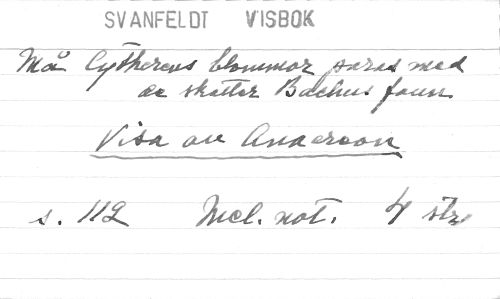 SVANFELDT VISBOK
Må Cythereus blommor paras med
de skatter Bachus faun
Visa av Anacreon
s. 112 Mel. not. 4 str